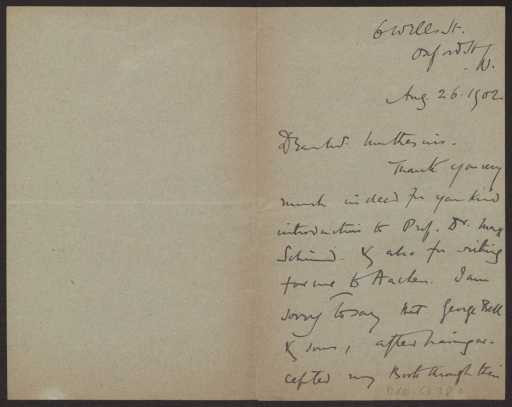 6 Wells St.
Oxford St
W.
Aug. 26. 1902.
Dear Mr. Muthesius.
Thank you very
much indeed for your kind
introduction to Prof. Dr. Max
Schmid. & also for writing
for me to Aachen. I am
sorry to say that George Bell
& Sons, after having ac-
cepted my Book through their